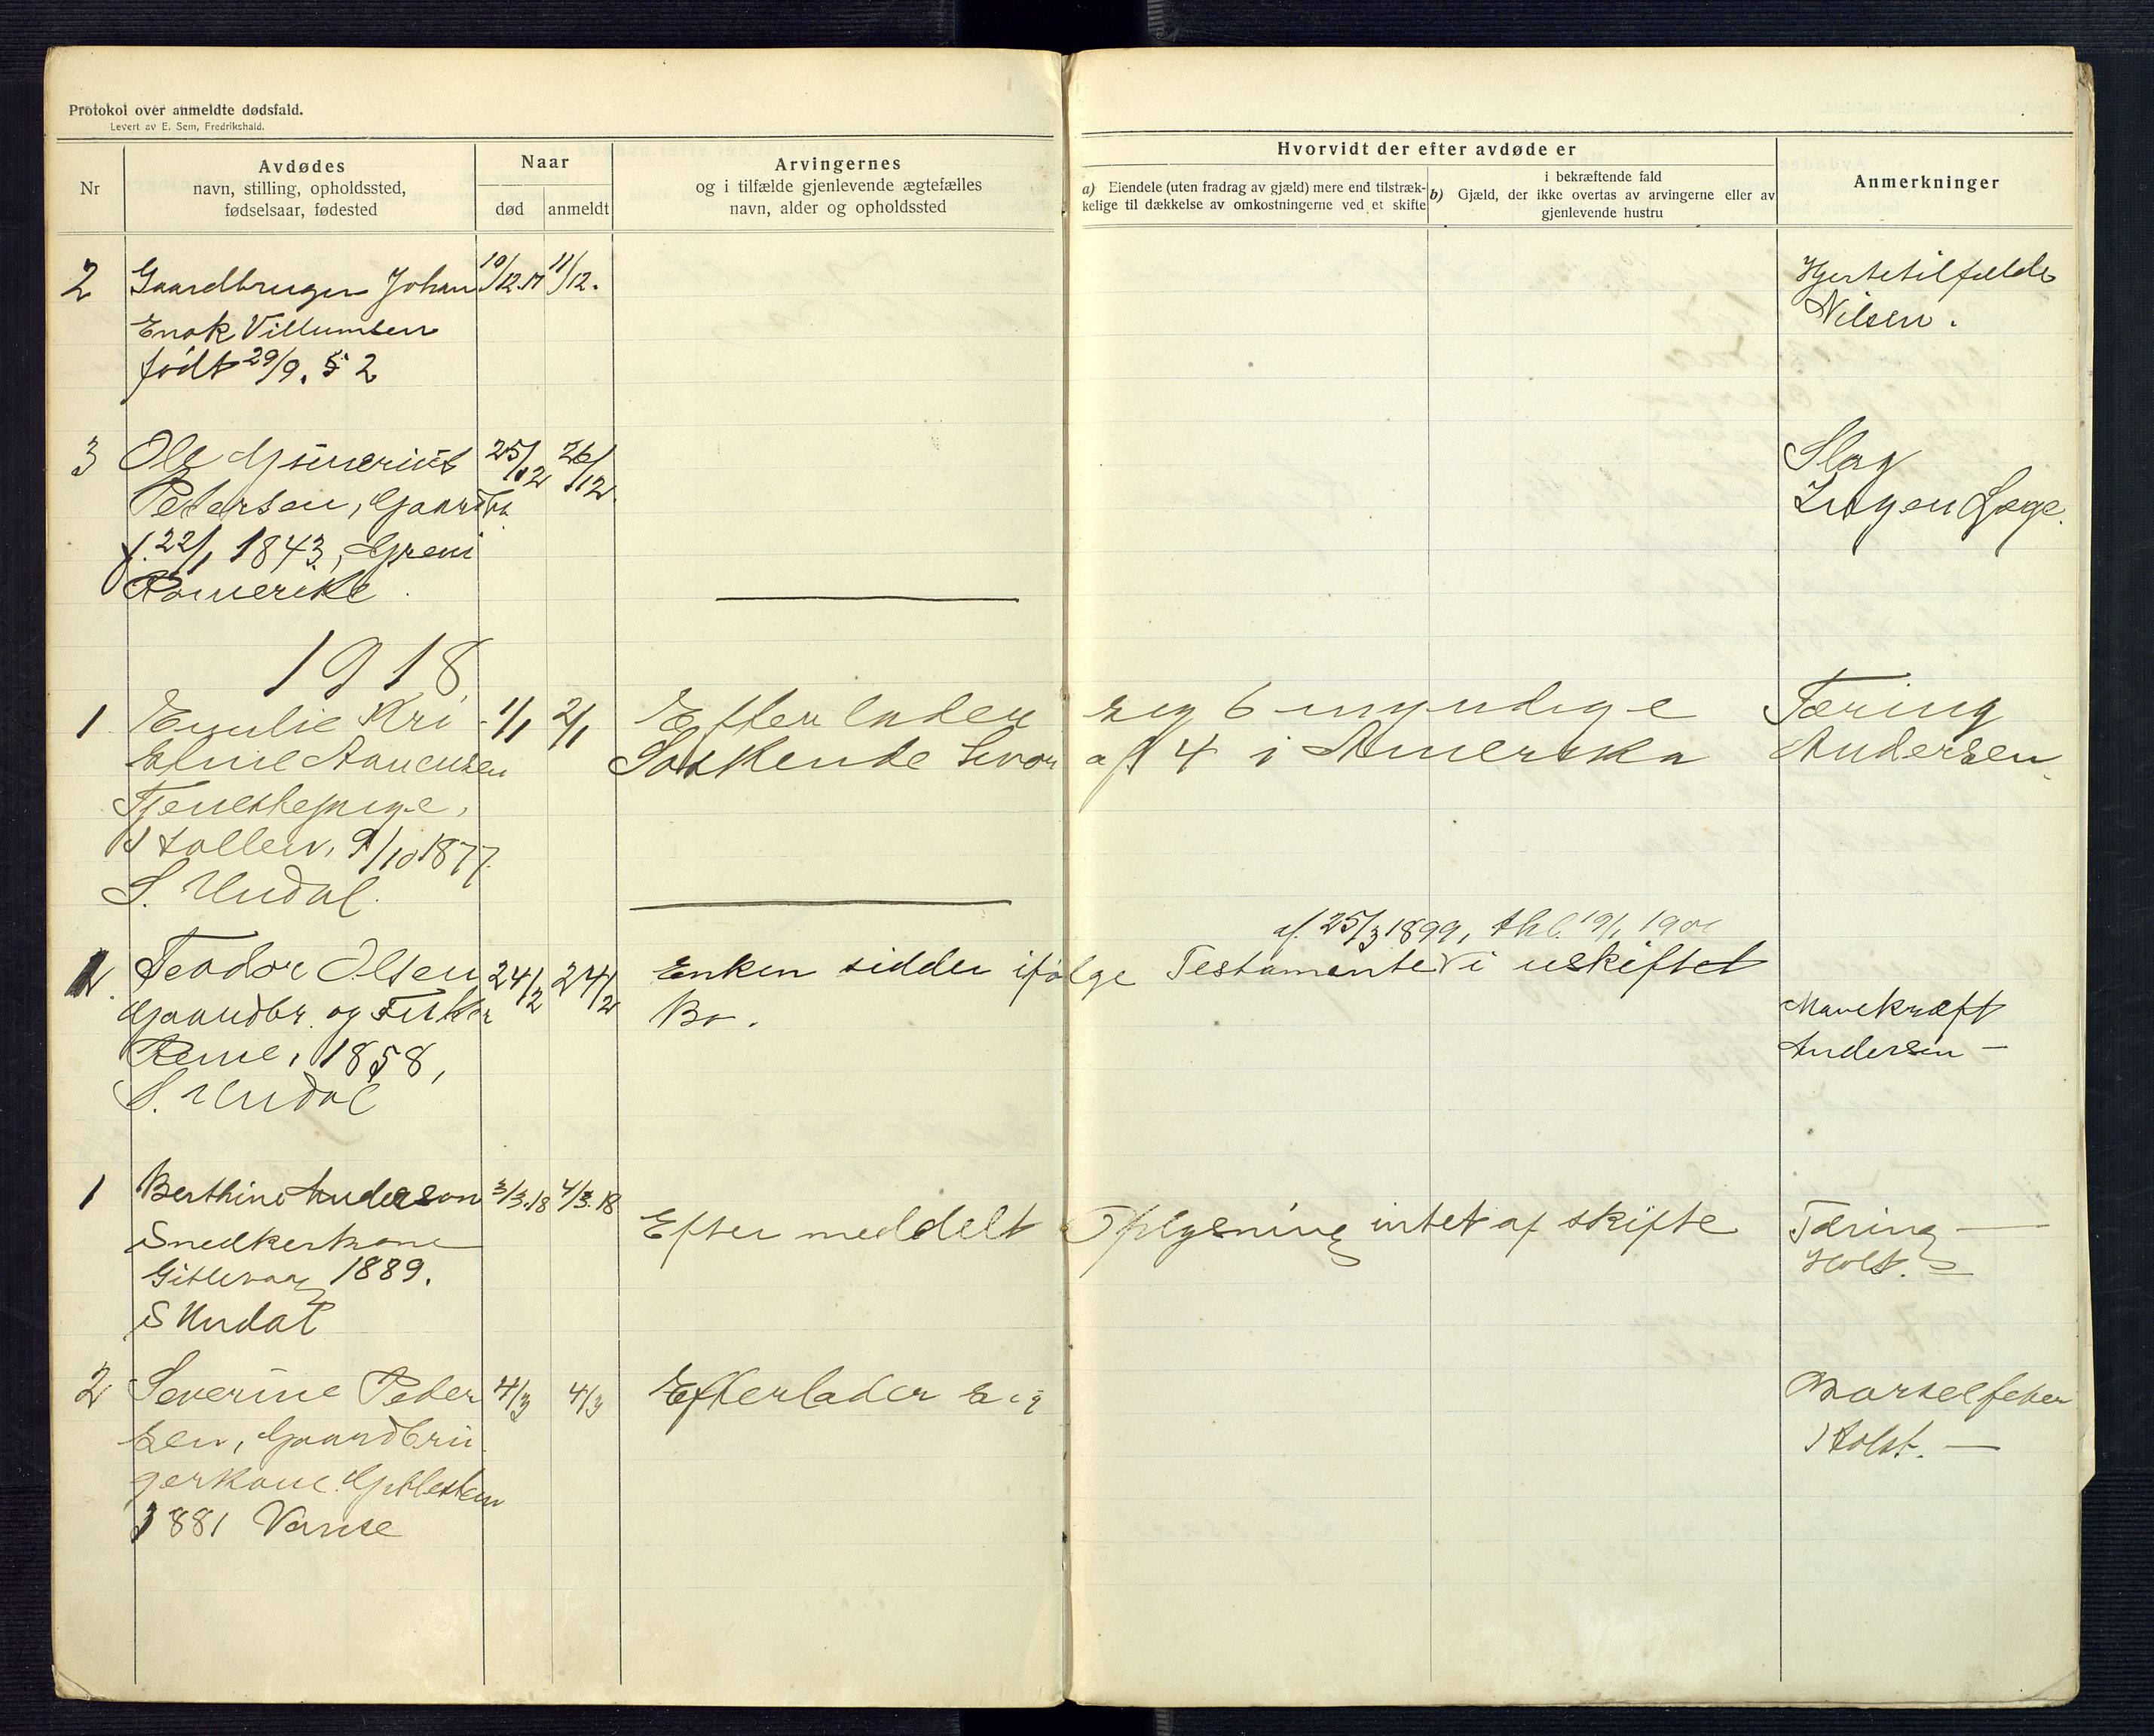 Protokol over anmeldte dødsfald.
Levert av E. Sem, Fredrikshald.
Nr
Avdødes
navn, stilling, opholdssted,
fødselsaar, fødested
Naar
død
anmeldt
Arvingernes
og i tilfælde gjenlevende ægtefælles
navn, alder og opholdssted
Hvorvidt der efter avdøde er
a) Eiendele (uten fradrag av gjæld) mere end tilstræk-
kelige til dækkelse av omkostningerne ved et skifte
i bekræftende fald
b) Gjæld, der ikke overtas av arvingerne eller av
gjenlevende hustru
Anmerkninger
2 Gaardbruger Johan 10/12.17 11/12. Hjertetilfælde
Enok Villumsen Nilsen.
født 29/9. 52
3 Ole Gunerius 25/12 26/12 Slag
Petersen, Gaardbr. Ingen Læge.
f. 22/1 1843,
Romerike
1918
1 Emilie Kri- 1/1 2/1 Efterlader sig 6 myndige Tæring
stine Aanensen Søskende hvor af 4 i Amerika Andersen
Tjenestepige,
9/10 1877.
S. Undal.
af 25/3 1899, thl. 19/1 1900
2 Teodor Olsen 24/2 24/2 Enken sidder ifølge Testamente V i uskiftet
Gaardbr. og Fisker Bo. Mavekræft
1858, Andersen —
S. Undal
1 Berthine Anderson 3/3.18 4/3.18 Efter meddelt Oplysning intet af skifte Tæring —
Snedkerkone Holst.
Gitlevaag 1889.
S Undal
2 Severine Peter 4/3 4/3 Efterlader sig Barselfeber
sen, Gaardbru Holst. —
gerkone. Gitlesten
1881 Vanse